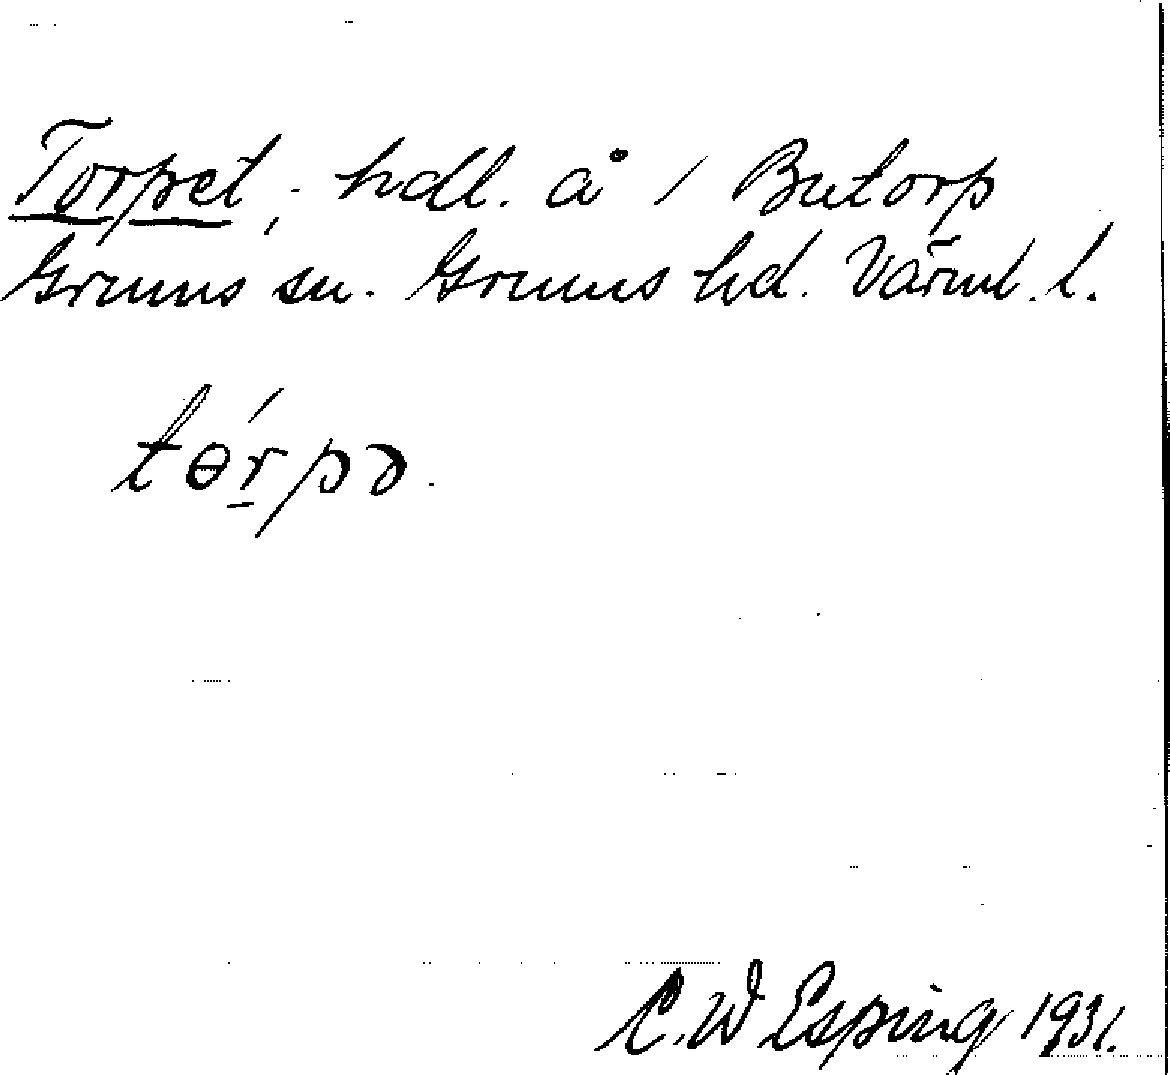 Torpet, hdl. å 1 Butorp
Grums sn. Grums hd. Värml. l.
tɵ́r̠pə.
C. W Esping 1931.